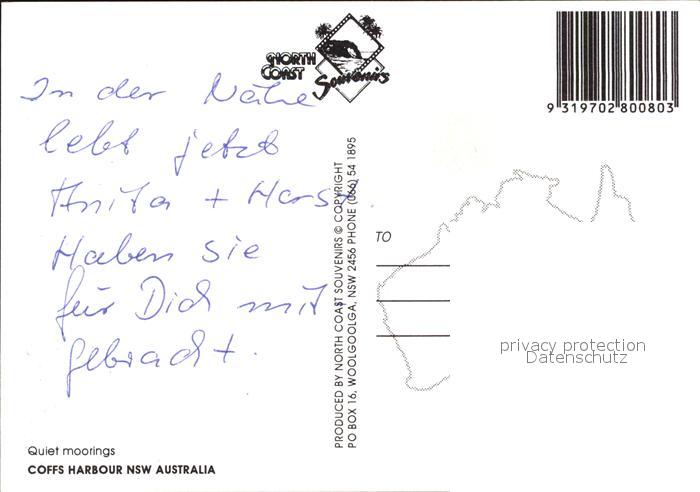 NORTH
COAST
Souvenirs
9 319702 800803
In der Nähe
lebt jetzt
Anita + Horst.
Haben Sie
für Dich mit
gebracht.
PRODUCED BY NORTH COAST SOUVENIRS © COPYRIGHT
PO BOX 16, WOOLGOOLGA, NSW 2456 PHONE (066) 54 1895
TO
privacy protection
Datenschutz
Quiet moorings
COFFS HARBOUR NSW AUSTRALIA